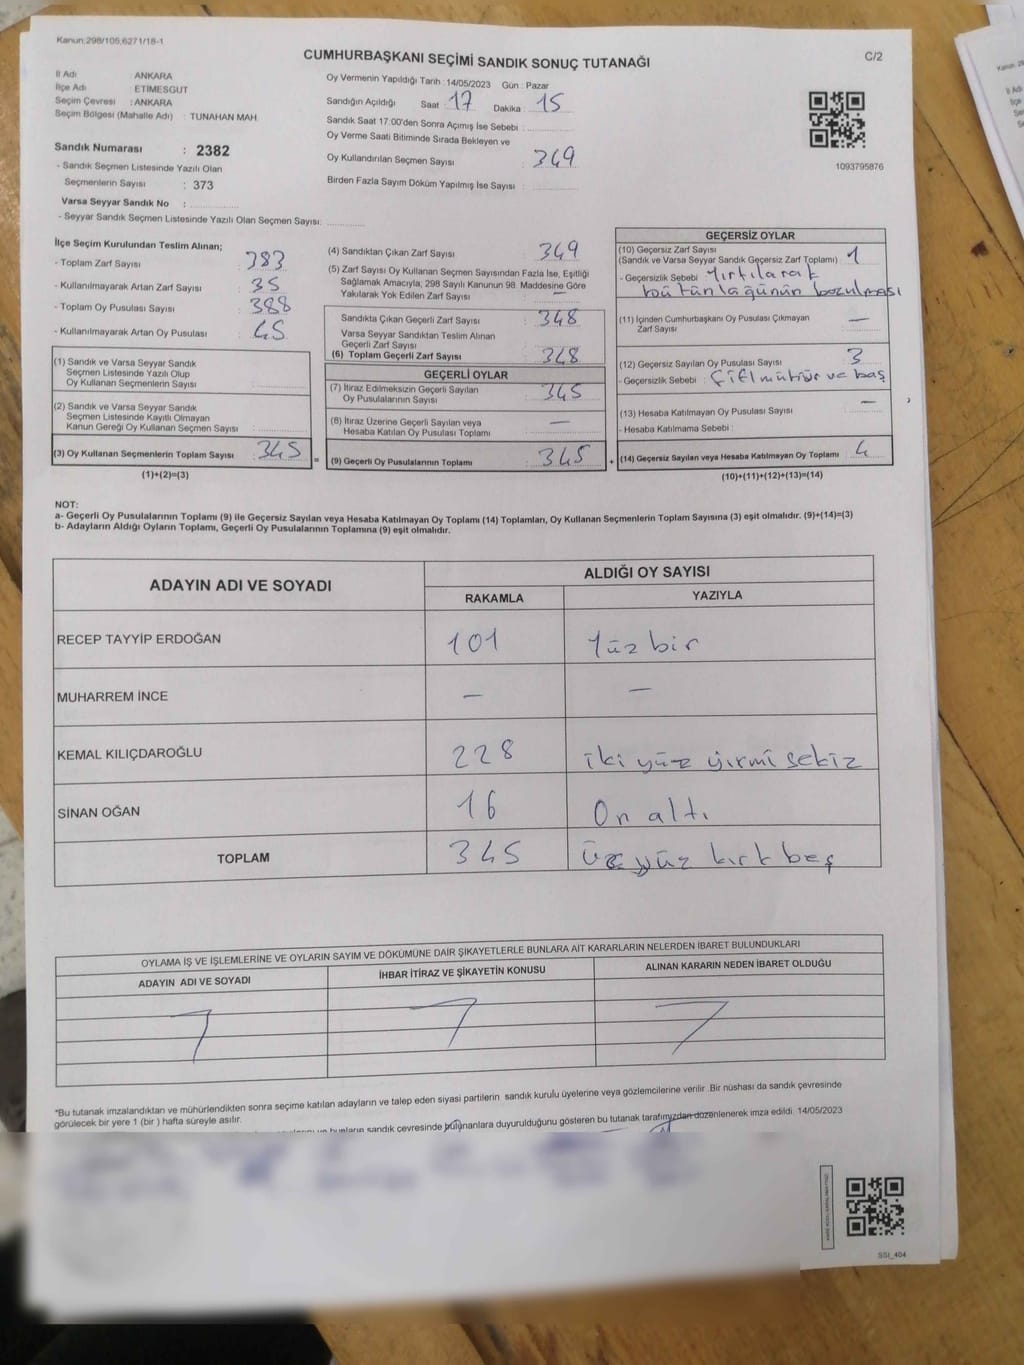 Kanun:298/105,6271/18-1
CUMHURBAŞKANI SEÇİMİ SANDIK SONUÇ TUTANAĞI
C/2
İl Adı ANKARA
İlçe Adı ETİMESGUT
Seçim Çevresi : ANKARA
Seçim Bölgesi (Mahalle Adı) : TUNAHAN MAH.
Sandık Numarası : 2382
- Sandık Seçmen Listesinde Yazılı Olan
Seçmenlerin Sayısı : 373
Varsa Seyyar Sandık No :
- Seyyar Sandık Seçmen Listesinde Yazılı Olan Seçmen Sayısı:
Oy Vermenin Yapıldığı Tarih : 14/05/2023 Gün : Pazar
Sandığın Açıldığı Saat : 17 Dakika : 15
Sandık Saat 17:00'den Sonra Açımış İse Sebebi :
Oy Verme Saati Bitiminde Sırada Bekleyen ve
Oy Kullandırılan Seçmen Sayısı : 349
Birden Fazla Sayım Döküm Yapılmış İse Sayısı :
1093795876
İlçe Seçim Kurulundan Teslim Alınan;
- Toplam Zarf Sayısı : 383
- Kullanılmayarak Artan Zarf Sayısı : 35
- Toplam Oy Pusulası Sayısı : 388
- Kullanılmayarak Artan Oy Pusulası : 45
(1) Sandık ve Varsa Seyyar Sandık
Seçmen Listesinde Yazılı Olup
Oy Kullanan Seçmenlerin Sayısı :
(2) Sandık ve Varsa Seyyar Sandık
Seçmen Listesinde Kayıtlı Olmayan
Kanun Gereği Oy Kullanan Seçmen Sayısı :
(3) Oy Kullanan Seçmenlerin Toplam Sayısı : 345
(1)+(2)=(3)
=
(4) Sandıktan Çıkan Zarf Sayısı : 349
(5) Zarf Sayısı Oy Kullanan Seçmen Sayısından Fazla İse, Eşitliği
Sağlamak Amacıyla, 298 Sayılı Kanunun 98. Maddesine Göre
Yakılarak Yok Edilen Zarf Sayısı : —
Sandıkta Çıkan Geçerli Zarf Sayısı : 348
Varsa Seyyar Sandıktan Teslim Alınan
Geçerli Zarf Sayısı :
(6) Toplam Geçerli Zarf Sayısı : 348
GEÇERLİ OYLAR
(7) İtiraz Edilmeksizin Geçerli Sayılan
Oy Pusulalarının Sayısı : 345
(8) İtiraz Üzerine Geçerli Sayılan veya
Hesaba Katılan Oy Pusulası Toplamı : —
(9) Geçerli Oy Pusulalarının Toplamı : 345
+
GEÇERSİZ OYLAR
(10) Geçersiz Zarf Sayısı
(Sandık ve Varsa Seyyar Sandık Geçersiz Zarf Toplamı) : 1
- Geçersizlik Sebebi : Yırtılarak
bütünlüğünün bozulması
(11) İçinden Cumhurbaşkanı Oy Pusulası Çıkmayan
Zarf Sayısı : —
(12) Geçersiz Sayılan Oy Pusulası Sayısı : 3
- Geçersizlik Sebebi : Çift mühür ve boş
(13) Hesaba Katılmayan Oy Pusulası Sayısı : —
- Hesaba Katılmama Sebebi :
(14) Geçersiz Sayılan veya Hesaba Katılmayan Oy Toplamı : 4
(10)+(11)+(12)+(13)=(14)
NOT:
a- Geçerli Oy Pusulalarının Toplamı (9) ile Geçersiz Sayılan veya Hesaba Katılmayan Oy Toplamı (14) Toplamları, Oy Kullanan Seçmenlerin Toplam Sayısına (3) eşit olmalıdır. (9)+(14)=(3)
b- Adayların Aldığı Oyların Toplamı, Geçerli Oy Pusulalarının Toplamına (9) eşit olmalıdır.
ADAYIN ADI VE SOYADI ALDIĞI OY SAYISI
RAKAMLA YAZIYLA
RECEP TAYYİP ERDOĞAN 101 Yüz bir
MUHARREM İNCE — —
KEMAL KILIÇDAROĞLU 228 iki yüz yirmi sekiz
SİNAN OĞAN 16 On altı
TOPLAM 345 Üç yüz kırk beş
OYLAMA İŞ VE İŞLEMLERİNE VE OYLARIN SAYIM VE DÖKÜMÜNE DAİR ŞİKAYETLERLE BUNLARA AİT KARARLARIN NELERDEN İBARET BULUNDUKLARI
ADAYIN ADI VE SOYADI İHBAR İTİRAZ VE ŞİKAYETİN KONUSU ALINAN KARARIN NEDEN İBARET OLDUĞU
*Bu tutanak imzalandıktan ve mühürlendikten sonra seçime katılan adayların ve talep eden siyasi partilerin sandık kurulu üyelerine veya gözlemcilerine verilir .Bir nüshası da sandık çevresinde
görülecek bir yere 1 (bir ) hafta süreyle asılır.
sandık çevresinde bulunanlara duyurulduğunu gösteren bu tutanak tarafımızdan düzenlenerek imza edildi. 14/05/2023
SSI_404